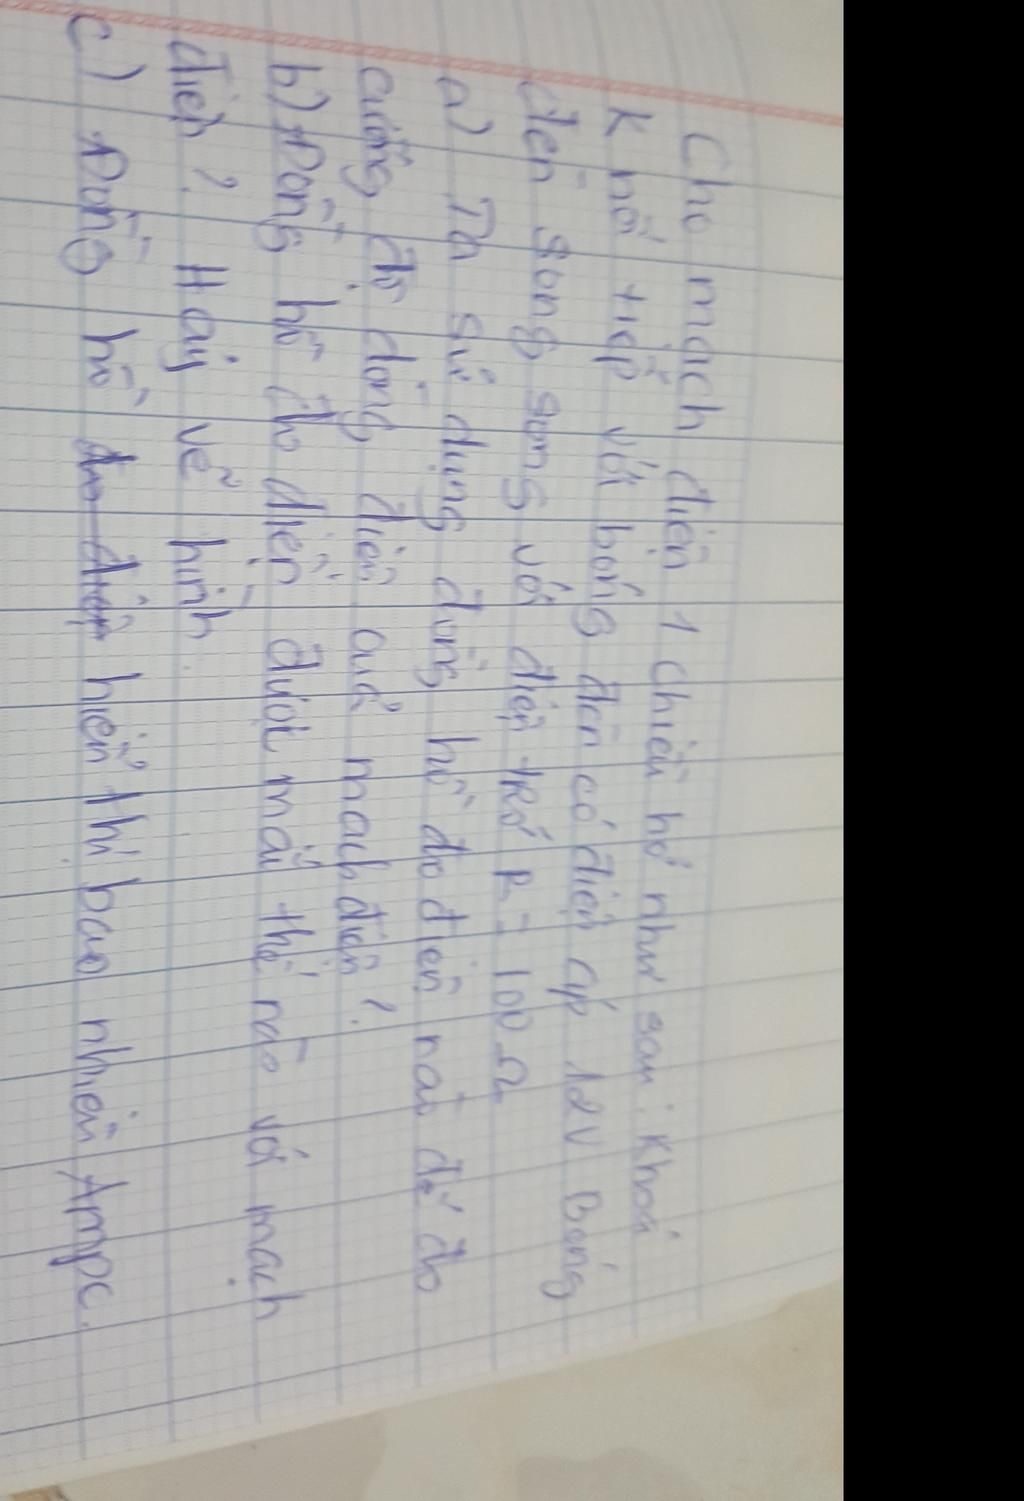 Cho mạch điện 1 chiều hở như sau: Khoá
K nối tiếp với bóng đèn có điện áp 12V Bóng
đèn song song với điện trở R = 100 Ω
a) Ta sử dụng đồng hồ đo điện nào để đo
cường độ dòng điện của mạch điện?
b) Đồng hồ đo điện được mắc thế nào với mạch
điện? Hãy vẽ hình.
c) Đồng hồ đo điện hiển thị bao nhiêu Ampe.